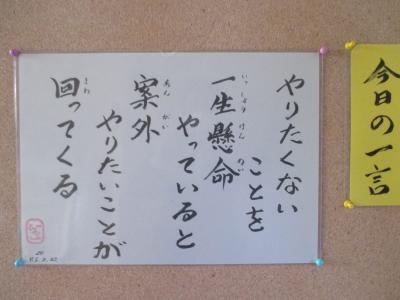 今日の一言
やりたくない
ことを
一生懸命
いっしょうけんめい
やっていると
案外
あんがい
やりたいことが
回ってくる
まわ